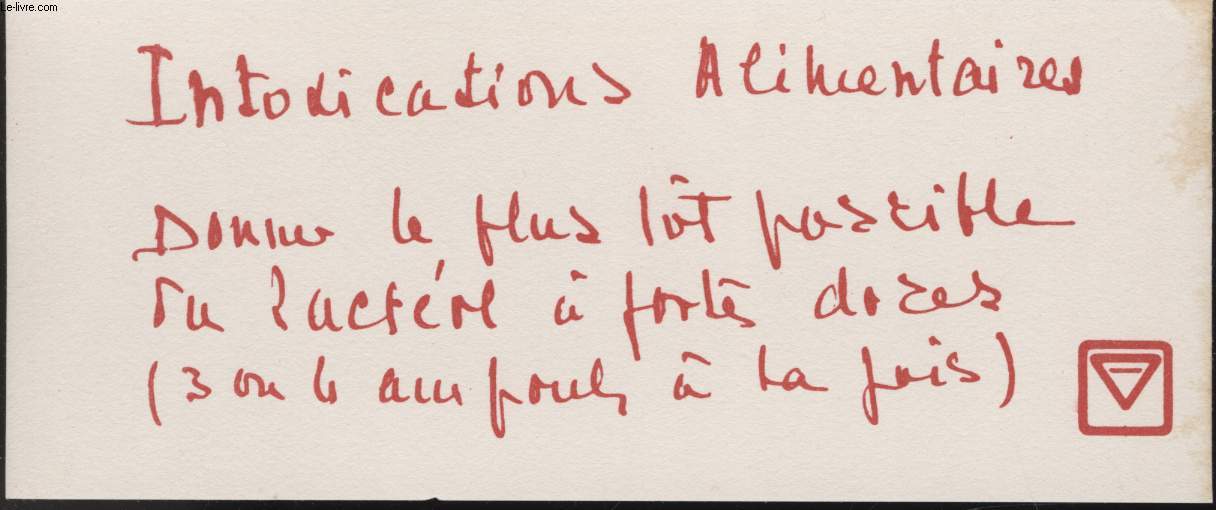 Le-livre.com
Intoxications Alimentaires
Donner le plus tôt possible
du Lactéol à fortes doses
(3 ou 4 ampoules à la fois)